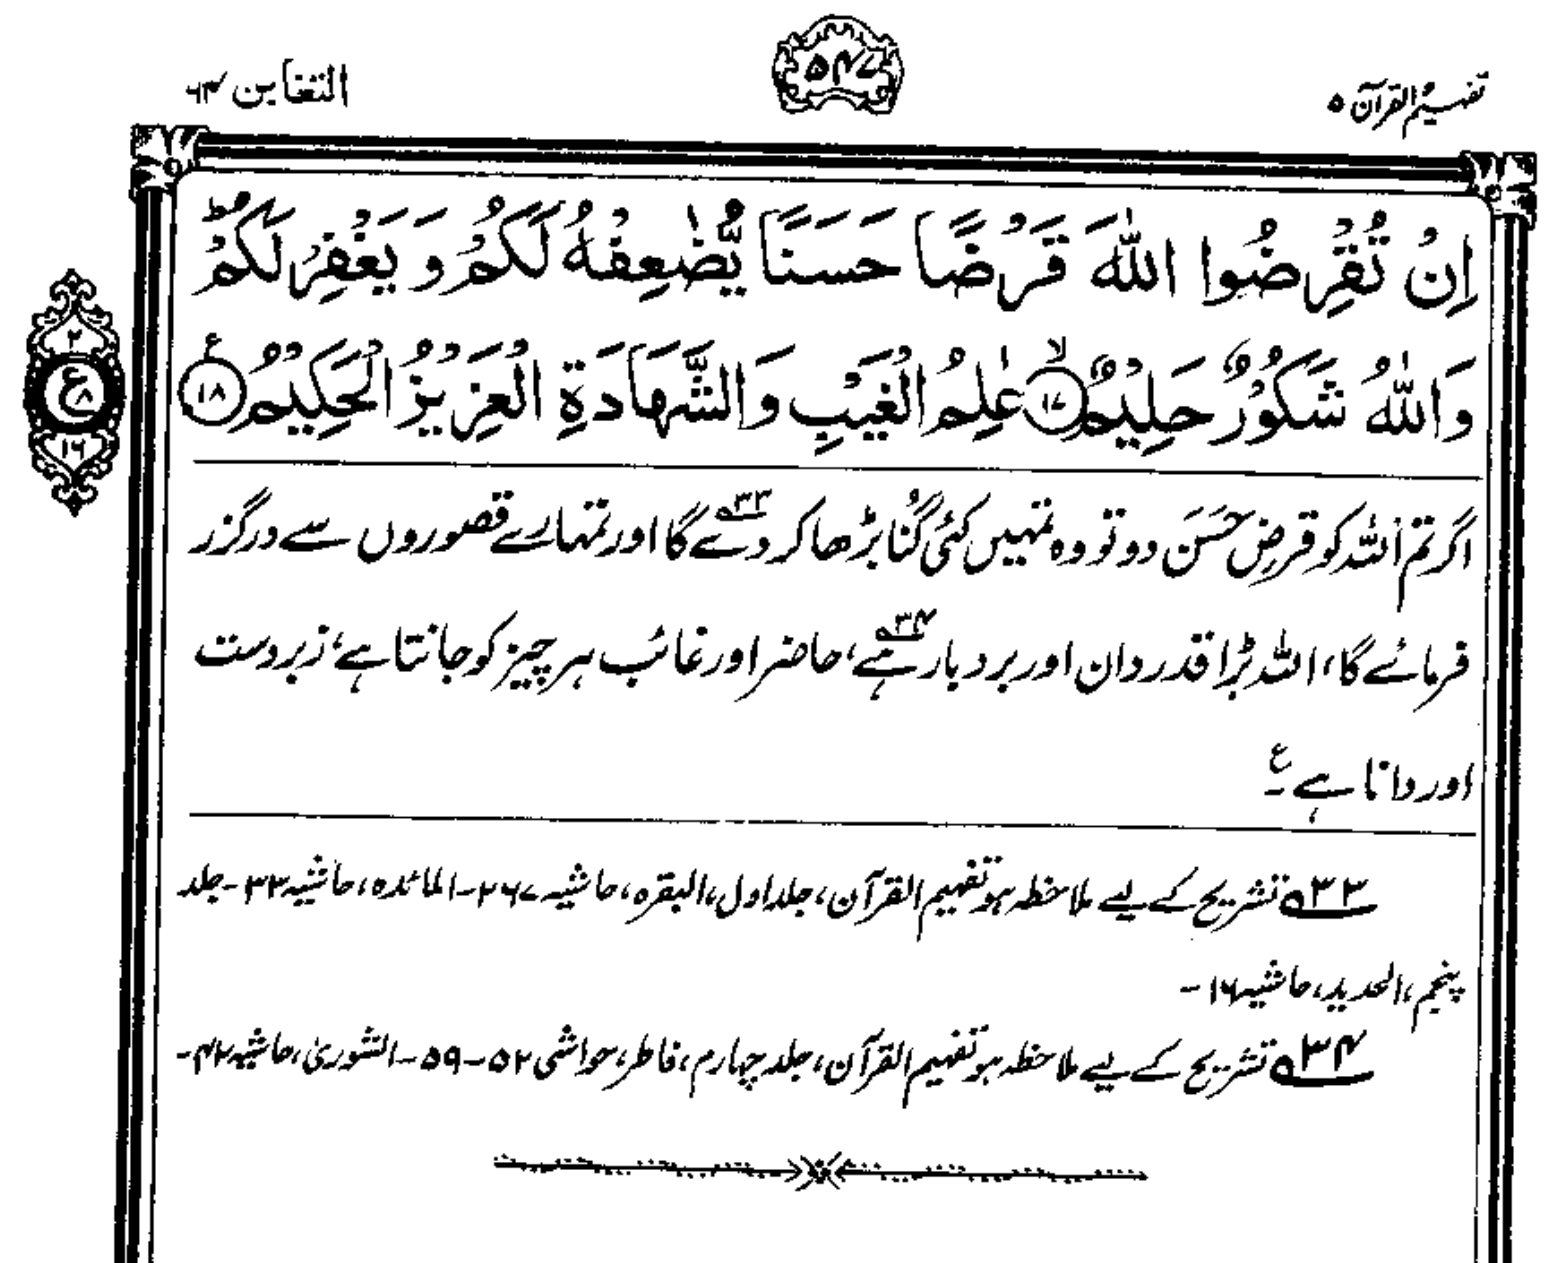 تفہیم القرآن ۵
۵۴۷
التغابن ۶۴
اِنْ تُقْرِضُوا اللّٰهَ قَرْضًا حَسَنًا یُّضٰعِفْهُ لَكُمْ وَ یَغْفِرْ لَكُمْ ؕ
وَاللّٰهُ شَكُوْرٌ حَلِیْمٌ ۙ﴿۱۷﴾ عٰلِمُ الْغَیْبِ وَالشَّهَادَةِ الْعَزِیْزُ الْحَكِیْمُ ﴿۱۸﴾ ع
۲
ع
۸
۱۶
اگر تم اللہ کو قرضِ حَسَن دو تو وہ تمہیں کئی گُنا بڑھا کر دے گا۳۳ اور تمہارے قصوروں سے درگزر
فرمائے گا، اللہ بڑا قدردان اور بردبار ہے۳۴، حاضر اور غائب ہر چیز کو جانتا ہے، زبردست
اور دانا ہے۔ ع
۳۳ تشریح کے لیے ملاحظہ ہو تفہیم القرآن، جلد اول، البقرہ، حاشیہ ۲۶۷۔ المائدہ، حاشیہ ۳۳۔ جلد
پنجم، الحدید، حاشیہ ۱۶۔
۳۴ تشریح کے لیے ملاحظہ ہو تفہیم القرآن، جلد چہارم، فاطر، حواشی ۵۲۔۵۹۔ الشوریٰ، حاشیہ ۴۲۔